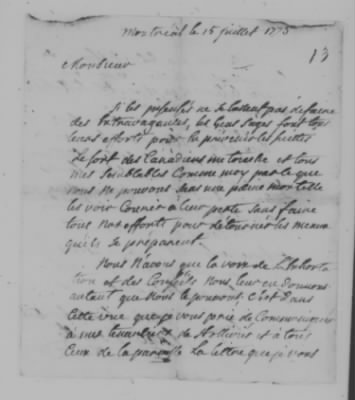 Montréal le 15 juillet 1775
13
Monsieur
Si les insensés ne se lassent pas de faire
des Extravagances, les Gens Sages font tous
leurs efforts pour en prévenir les suittes
Le sort des Canadiens et tous
mes semblables Comme moy par ce que
nous ne pouvons sans une peine mortelle
les voir Courir à leur perte sans faire
tous nos efforts pour détourner les maux
qu'ils se préparent.
Nous N'avons que la voix de l'Exhorta
tion et des Conseils Nous leur en donnons
autant que Nous le pouvons. C'est Dans
Cette vüe que je vous prie de Communiquer
à mes tenanciers de et à tous
Ceux de la paroisse La lettre que je vous